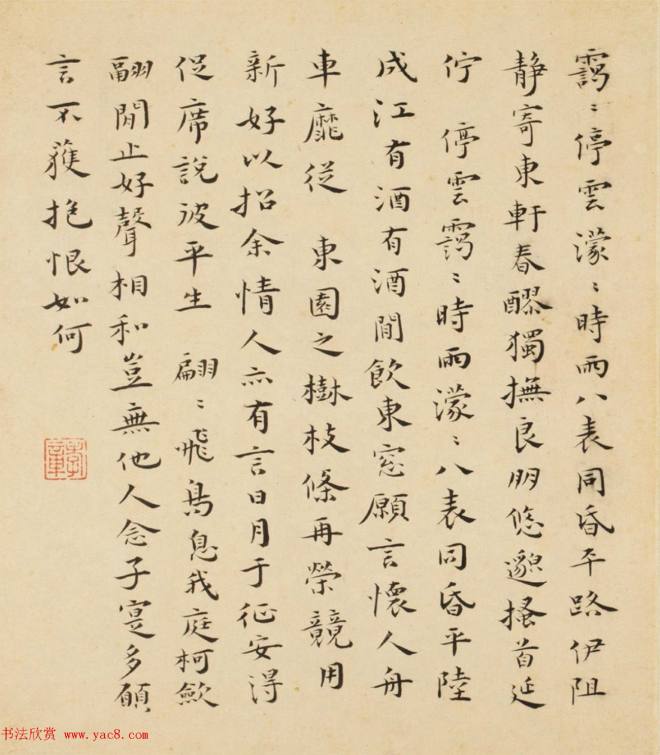 靄〻停雲濛〻時雨八表同昏平路伊阻
静寄東軒春醪獨撫良朋悠邈搔首延
佇 停雲靄〻時雨濛〻八表同昏平陸
成江有酒有酒閒飲東窓願言懷人舟
車靡從 東園之樹枝條再榮競用
新好以招余情人亦有言日月于征安得
促席說彼平生 翩〻飛鳥息我庭柯歛
翮閒止好聲相和豈無他人念子寔多願
言不獲抱恨如何
书法欣赏 www.yac8.com